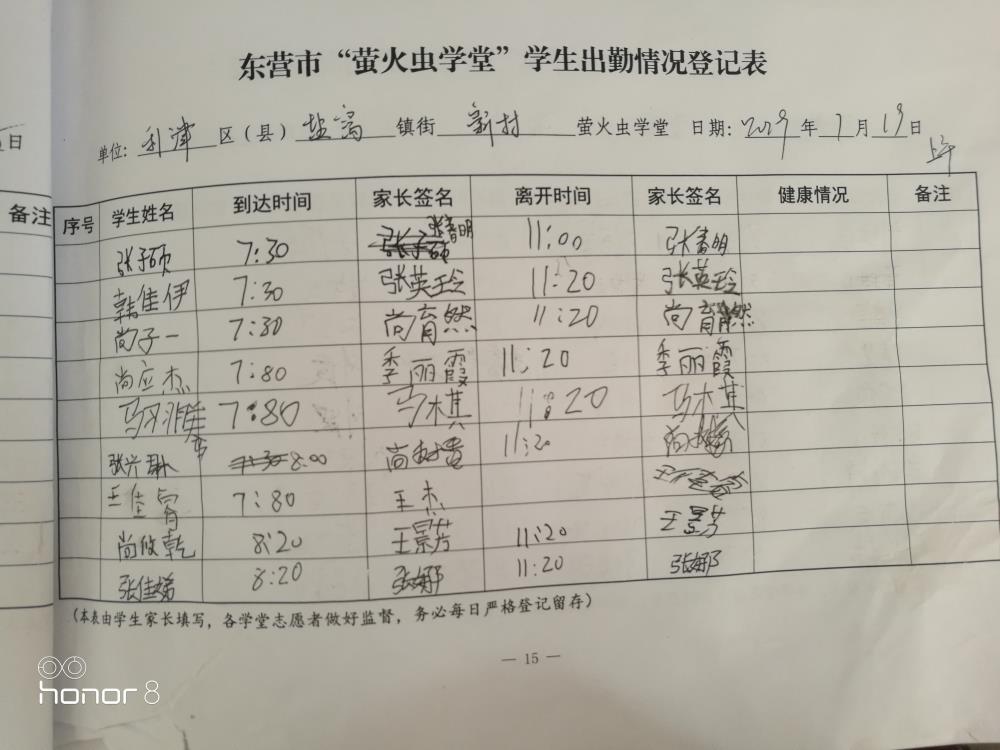 东营市“萤火虫学堂”学生出勤情况登记表
日
单位: 利津 区（县） 盐窝 镇街 新村 萤火虫学堂 日期: 2019 年 7 月 19 日
上午
备注
序号 学生姓名 到达时间 家长签名 离开时间 家长签名 健康情况 备注
张子硕 7:30 张春明 11:00 张春明
韩佳伊 7:30 张英玲 11:20 张英玲
尚子一 7:30 尚育然 11:20 尚育然
尚应杰 7:80 季丽霞 11:20 季丽霞
7:80 马木其 11:20 马木其
张兴琳 8:00 尚 11:20 尚
王佳 7:80 王杰
尚攸乾 8:20 王景芳 11:20 王景芳
张佳娣 8:20 张娜 11:20 张娜
（本表由学生家长填写，各学堂志愿者做好监督，务必每日严格登记留存）
— 15 —
honor 8